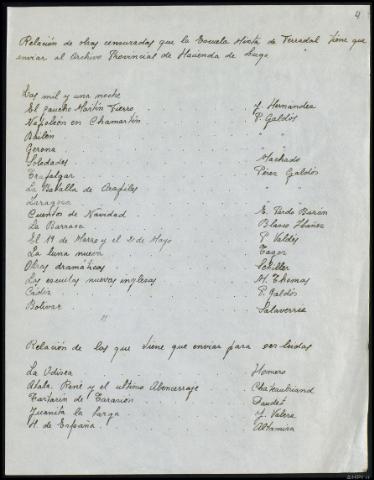 4
Relación de obras censuradas que la Escuela Mixta de Ferradal tiene que
enviar al Archivo Provincial de Hacienda de Lugo
Las mil y una noche
El gaucho Martín Fierro J. Hernandez
Napoleón en Chamartín P. Galdós
Bailén " "
Gerona " "
Soledades Machado
Trafalgar Pérez Galdós
La Batalla de Arapiles " "
Zaragoza
Cuentos de Navidad E. Pardo Bazán
La Barraca Blasco Ibáñez
El 19 de Marzo y el 2 de Mayo P. Valdés
La luna nueva Tagor
Obras dramáticas Schiller
Las escuelas nuevas inglesas M. Thomas
Cádiz P. Galdós
Bolívar Salaverria
"
Relación de los que tiene que enviar para ser leidas
La Odisea Homero
Atala. René y el ultimo Abencerraje Chateaubriand
Tartarín de Tarascón Daudet
Juanita la Larga J. Valera
H. de España Altamira